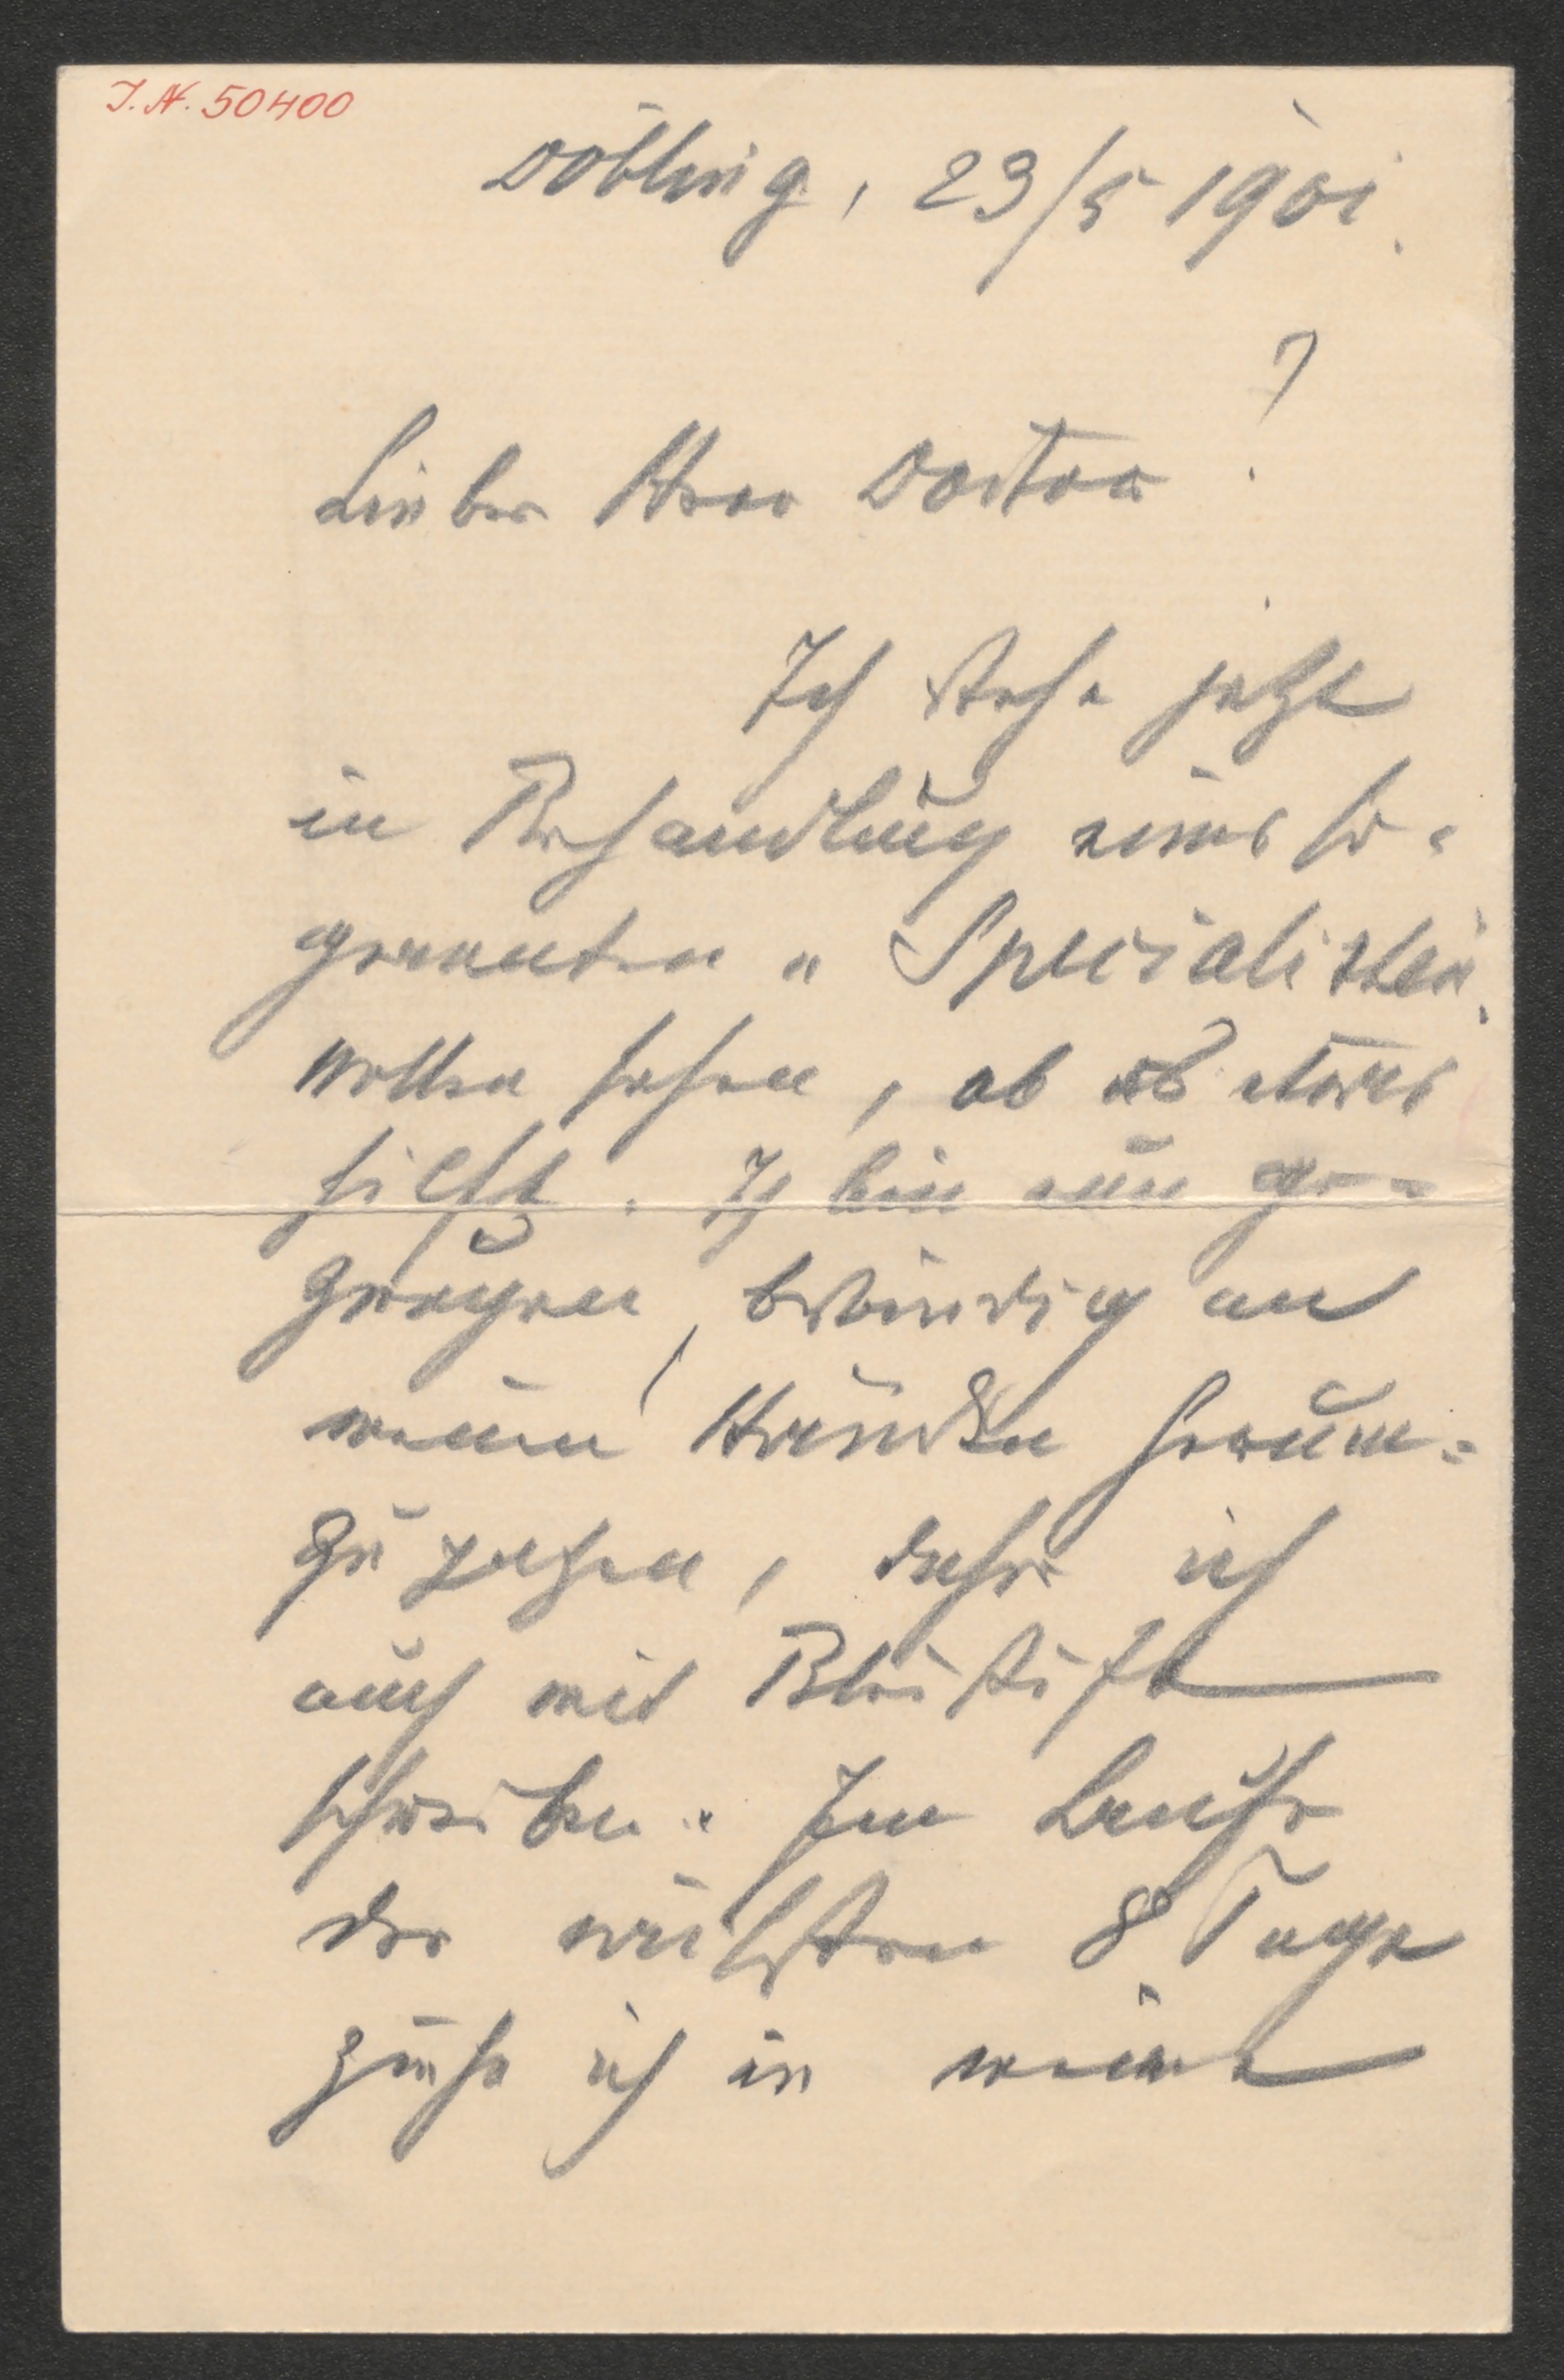 I. N. 50400
Döbling, 23/5 1901.
Lieber Herr Doctor!
Ich stehe jetzt
in Behandlung eines so-
genannten „Specialisten“
wollen sehen, ob es etwas
hilft. Ich bin nun ge-
zwungen, beständig an
meinen Händen herum-
zu, daher ich
auch mit Bleistift
schreibe. Im Laufe
der nächsten 8 Tage
ziehe ich in meine